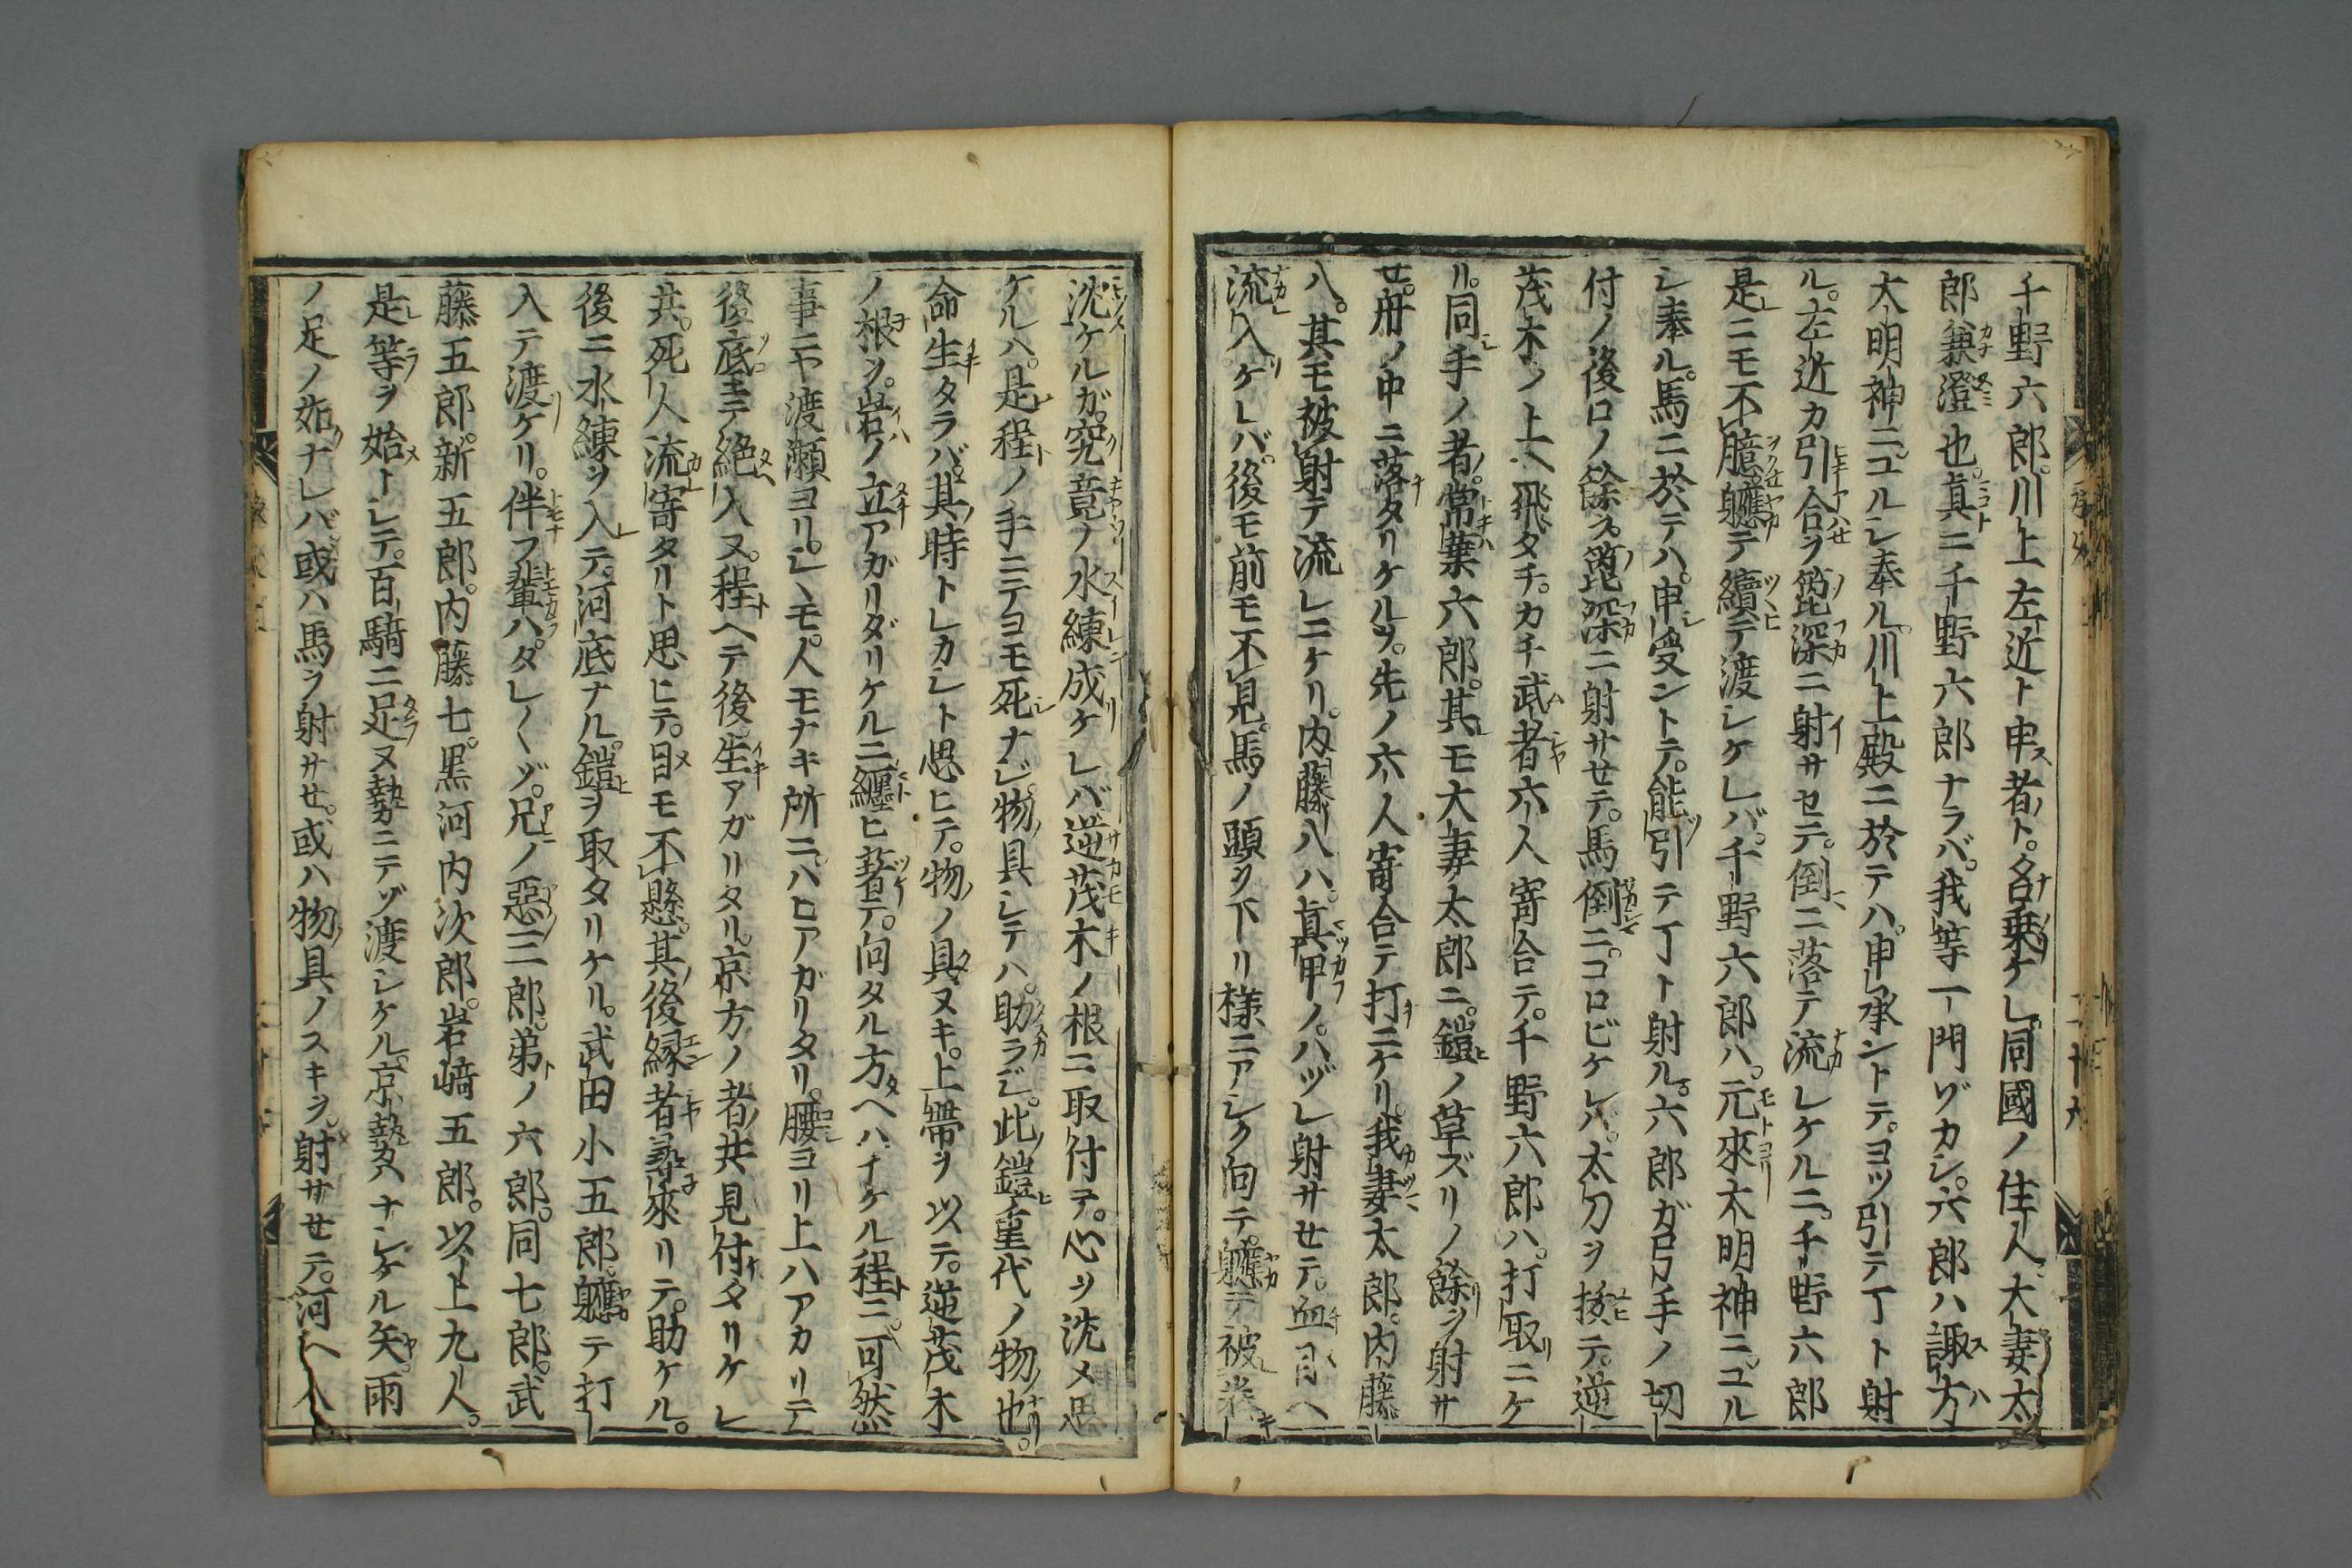 千野六郎。川上左近ト申者ト。名乗ケレ。同國ノ住人。大妻太
郎兼澄也。真ニ千野六郎ナラバ。我等一門ゾカシ。六郎ハ諏方
大明神ニユルシ奉ル。川上殿ニ於テハ。申承ントテ。ヨツ引テ丁ト射
ル。左近カ引合ヲ箆深ニ射サセテ。倒ニ落テ流レケルニ。千野六郎
是ニモ不臆軈テ續テ渡シケレバ。千野六郎ハ。元來大明神ニユル
シ奉ル。馬ニ於テハ。申受ントテ。能引テ丁ト射ル。六郎ガ弓手ノ切
付ノ後ロノ餘ヲ。箆深ニ射サセテ。馬倒ニ。コロビケレバ。太刀ヲ抜テ。逆
茂木ノ上ヘ飛タチ。カチ武者六人寄合テ。千野六郎ハ。打取ニケ
リ。同手ノ者。常葉六郎。其モ大妻太郎ニ。鎧ノ草ズリノ餘ヲ射サ
セ。舟ノ中ニ落タリケルヲ。先ノ六人寄合テ打ニケリ。我妻太郎。内藤
八。其モ被射テ流レニケリ。内藤八ハ。真甲ノ。ハヅレ射サセテ。血目ヘ
流入ケレバ。後モ前モ不見。馬ノ頭ヲ下リ様ニアシク向テ。軈テ被巻
沈ケルガ。究竟ノ水練成ケレバ。逆茂木ノ根ニ取付テ。心ヲ沈メ思
ケルハ。是程ノ手ニテヨモ死ナジ。物具シテハ。助ラジ。此鎧重代ノ物也。
命生タラバ。其時トレカシト思ヒテ。物ノ具ヌキ。上帶ヲ以テ。逆茂木
ノ根ヲ。岩ノ立アガリタリケルニ纏ヒ著テ。向タル方ヘハイケル程ニ。可然
事ニヤ渡瀬ヨリ。シモ人モナキ所ニ。ハヒアガリタリ。腰ヨリ上ハアカリテ
後底ニテ絶入ヌ。程ヘテ後生アガリタリ。京方ノ者共見付タリケレ
共。死人流寄タリト思ヒテ。目モ不懸。其後縁者尋來リテ。助ケル。
後ニ水練ヲ入テ。河底ナル。鎧ヲ取タリケリ。武田小五郎。軈テ打
入テ渡ケリ。伴フ輩ハ。タレ〳〵ゾ。兄ノ惡三郎。弟ノ六郎。同七郎。武
藤五郎。新五郎。内藤七。黒河内次郎。岩﨑五郎。以上九人。
是等ヲ始トシテ。百騎ニ足ヌ勢ニテゾ渡シケル。京勢ハナシケル矢。雨
ノ足ノ如ナレバ。或ハ馬ヲ射サセ。或ハ物具ノスキヲ。射サセテ。河ヘ入